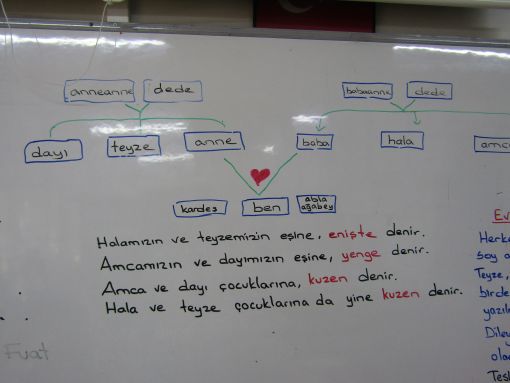 anneanne dede babaanne dede
dayı teyze anne baba hala amca
kardeş ben abla
ağabey
Halamızın ve teyzemizin eşine, enişte denir.
Amcamızın ve dayımızın eşine, yenge denir.
Amca ve dayı çocuklarına, kuzen denir.
Hala ve teyze çocuklarına da yine kuzen denir.
Fuat
Ev
Herke
soy a
Teyze,
birde
yazıl
Dile
ola
Teş